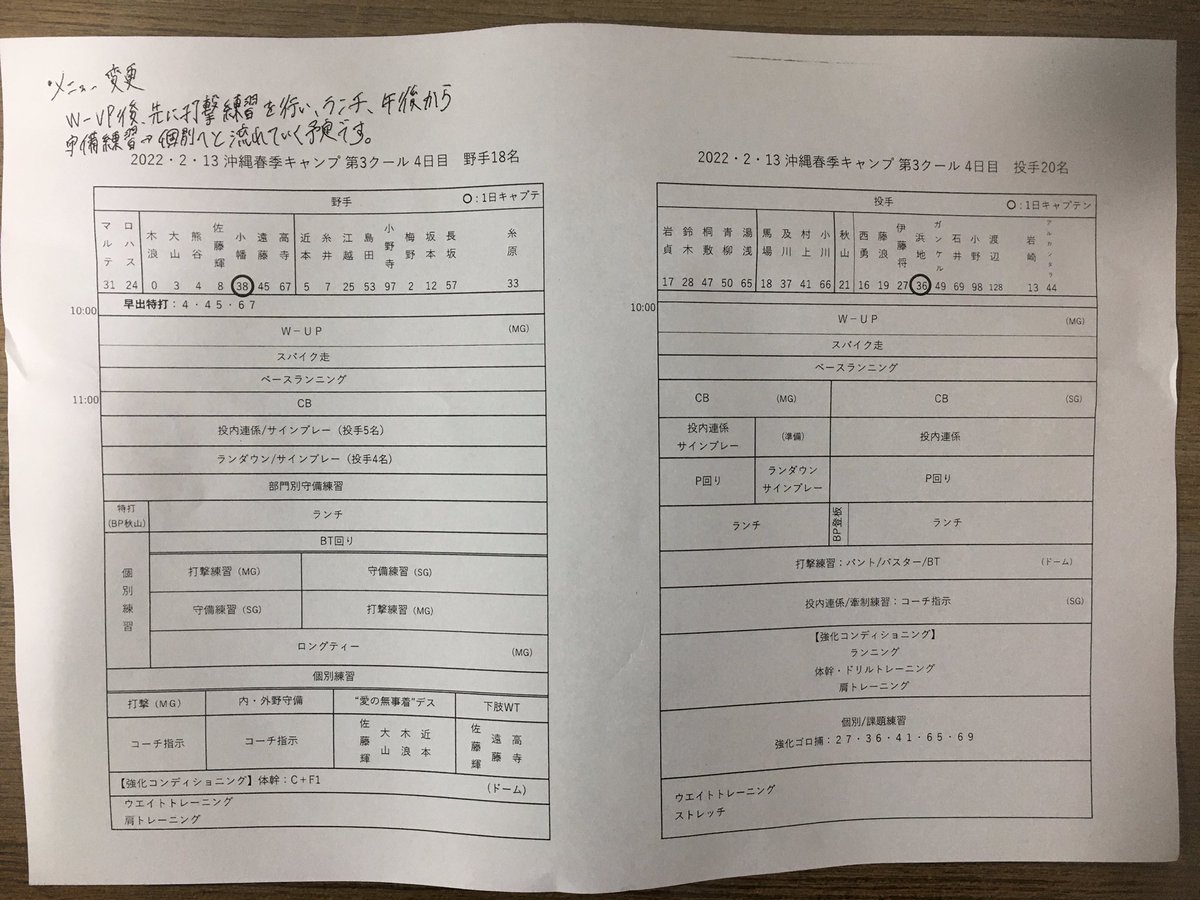 ・メニュー変更
W-UP後、先に打撃練習を行い、ランチ、午後から
守備練習→個別へと流れていく予定です。
2022・2・13 沖縄春季キャンプ 第3クール 4日目 野手18名
野手 〇:1日キャプテ
マルテ ロハス 木浪 大山 熊谷 佐藤輝 小幡 遠藤 高寺 近本 糸井 江越 島田 小野寺 梅野 坂本 長坂 糸原
31 24 0 3 4 8 38 45 67 5 7 25 53 97 2 12 57 33
早出特打:4・45・67
10:00
W-UP (MG)
スパイク走
ベースランニング
11:00
CB
投内連係/サインプレー(投手5名)
ランダウン/サインプレー(投手4名)
部門別守備練習
特打
(BP秋山)
ランチ
BT回り
個別練習
打撃練習(MG) 守備練習(SG)
守備練習(SG) 打撃練習(MG)
ロングティー (MG)
個別練習
打撃(MG) 内・外野守備 “愛の無事着”デス 下肢WT
コーチ指示 コーチ指示 佐藤輝 大山 木浪 近本 佐藤輝 遠藤 高寺
【強化コンディショニング】体幹:C+F1 (ドーム)
ウエイトトレーニング
肩トレーニング
2022・2・13 沖縄春季キャンプ 第3クール 4日目 投手20名
投手 〇:1日キャプテン
岩貞 鈴木 桐敷 青柳 湯浅 馬場 及川 村上 小川 秋山 西勇 藤浪 伊藤将 浜地 ガンケル 石井 小野 渡辺 岩崎 アルカンタラ
17 28 47 50 65 18 37 41 66 21 16 19 27 36 49 69 98 128 13 44
10:00
W-UP (MG)
スパイク走
ベースランニング
CB (MG) CB (SG)
投内連係
サインプレー
(準備)
投内連係
P回り
ランダウン
サインプレー
P回り
ランチ
BP登板
ランチ
打撃練習:バント/バスター/BT (ドーム)
投内連係/牽制練習:コーチ指示 (SG)
【強化コンディショニング】
ランニング
体幹・ドリルトレーニング
肩トレーニング
個別/課題練習
強化ゴロ捕:27・36・41・65・69
ウエイトトレーニング
ストレッチ